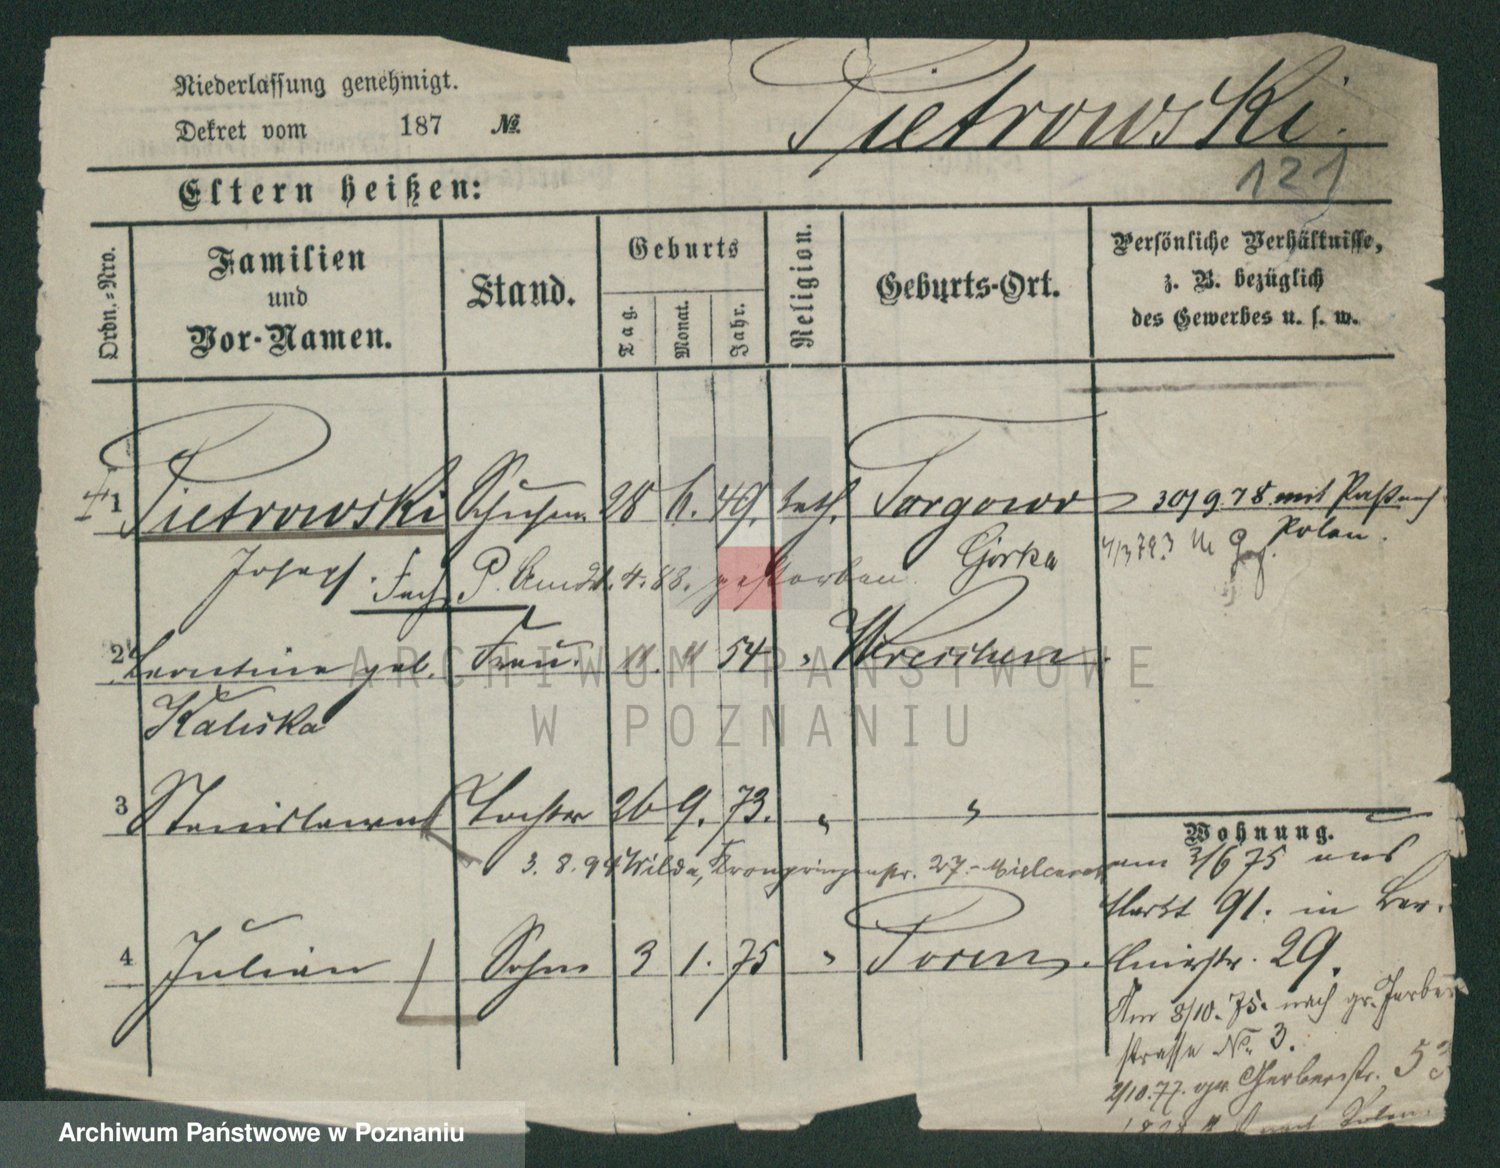 Niederlassung genehmigt.
Dekret vom 187 №
Pietrowski.
121
Eltern heißen:
Ordn.-Nro.
Familien
und
Vor-Namen.
Stand.
Geburts
Tag.
Monat.
Jahr.
Religion.
Geburts-Ort.
Persönliche Verhältnisse,
z. B. bezüglich
des Gewerbes u. s. w.
1 Pietrowski 28 6. 49. kath. Targowo 30/9.78 mit Paß nach
Polen.
Josef. P. 4. 88. gestorben. Górka
2 Leontine geb. Frau. 11. 11 54 " Wreschen.
Kaliska
3 Stanislawa Tochter 26 9. 73. " "
3. 8. 94 Wilda, Kronprinzenstr. 27.
Wohnung.
am 2/6 75 aus
Markt 91. in Ber-
linerstr. 29.
4 Julian Sohn 3 1. 75 " Posen.
Am 8/10. 75. nach gr. Gerber
strasse No. 3.
2/10.77. gr. Gerberstr. 53
nach Polen
ARCHIWUM PAŃSTWOWE
W POZNANIU
Archiwum Państwowe w Poznaniu